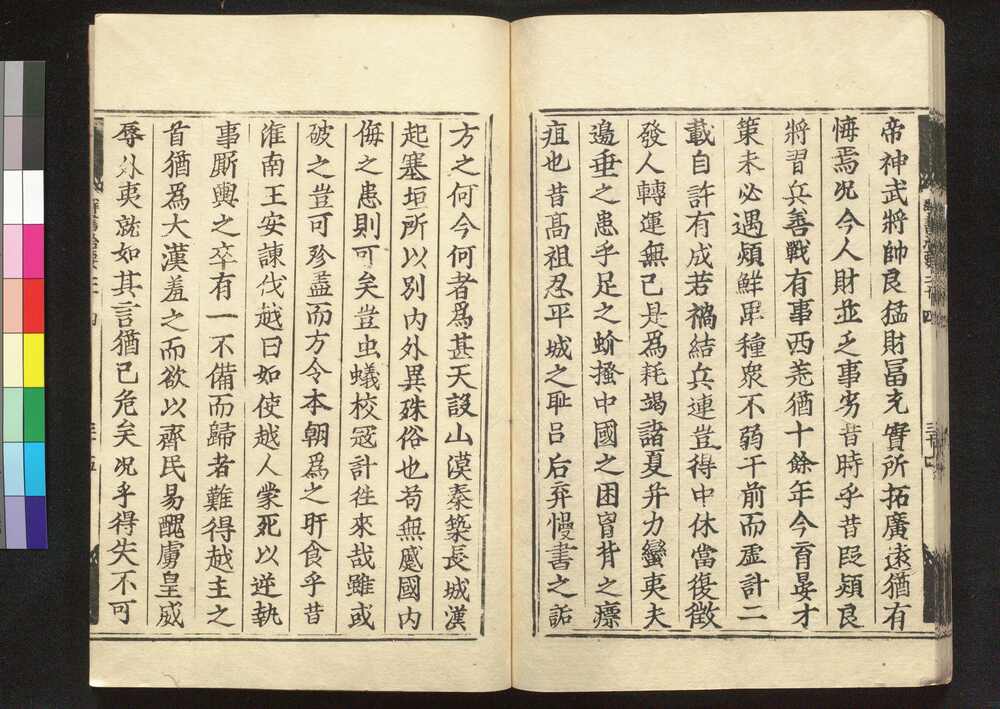 帝神武將帥良猛財冨充實所拓廣遠猶有
悔焉况今人財並乏事劣昔時乎昔段熲良
將習兵善戰有事西羌猶十餘年今育晏才
策未必過熲鮮卑種衆不弱于前而虚計二
載自許有成若禍結兵連豈得中休當復徵
發人轉運無已是爲耗竭諸夏并力蠻夷夫
邊垂之患手足之蚧搔中國之困胷背之瘭
疽也昔髙祖忍平城之耻吕后弃慢書之詬
方之何今何者爲甚天設山漠秦築長城漢
起塞垣所以别内外異殊俗也苟無慼國内
侮之患則可矣豈虫蟻校冦計徃來哉雖或
破之豈可殄盡而方令本朝爲之旰食乎昔
淮南王安諫伐越曰如使越人蒙死以逆執
事厮輿之卒有一不備而歸者雖得越主之
首猶爲大漢羞之而欲以齊民易醜虜皇威
辱外夷就如其言猶已危矣况乎得失不可